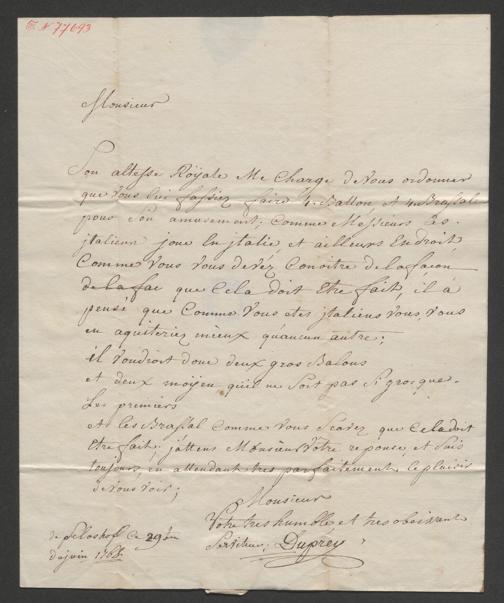 T. N 77693
Monsieur
Son altesse Röyale Me Charge de Vous ordonner
que Vous lui fassiez faire 4. Ballon et 4. Brassal
pour Son amusement; Comme Messieurs les
jtalien joue En jtalie et ailleurs En droit,
Comme Vous Vous devéz Conoitre de la façon
de la fac que Cela doit Etre fait, il à
pensé que Comme Vous etes jtaliens Vous Vous
en aquiteriez mieux qu'aucun autre;
il Voudroit donc deux gros Balons
et deux moÿen qu'il ne Soit pas Si gros que
Les premiers
et les Brassal Comme Vous Scavez que Cela doit
Etre fait; j'attens Monsieur Votre reponse et Suis
toujours, en attendant tres parfaitement le plaisir
de Vous Voir;
Monsieur
Votre tres humble et tres obeissant
Serviteur, Duprey
de Ce 29
d'ajuin